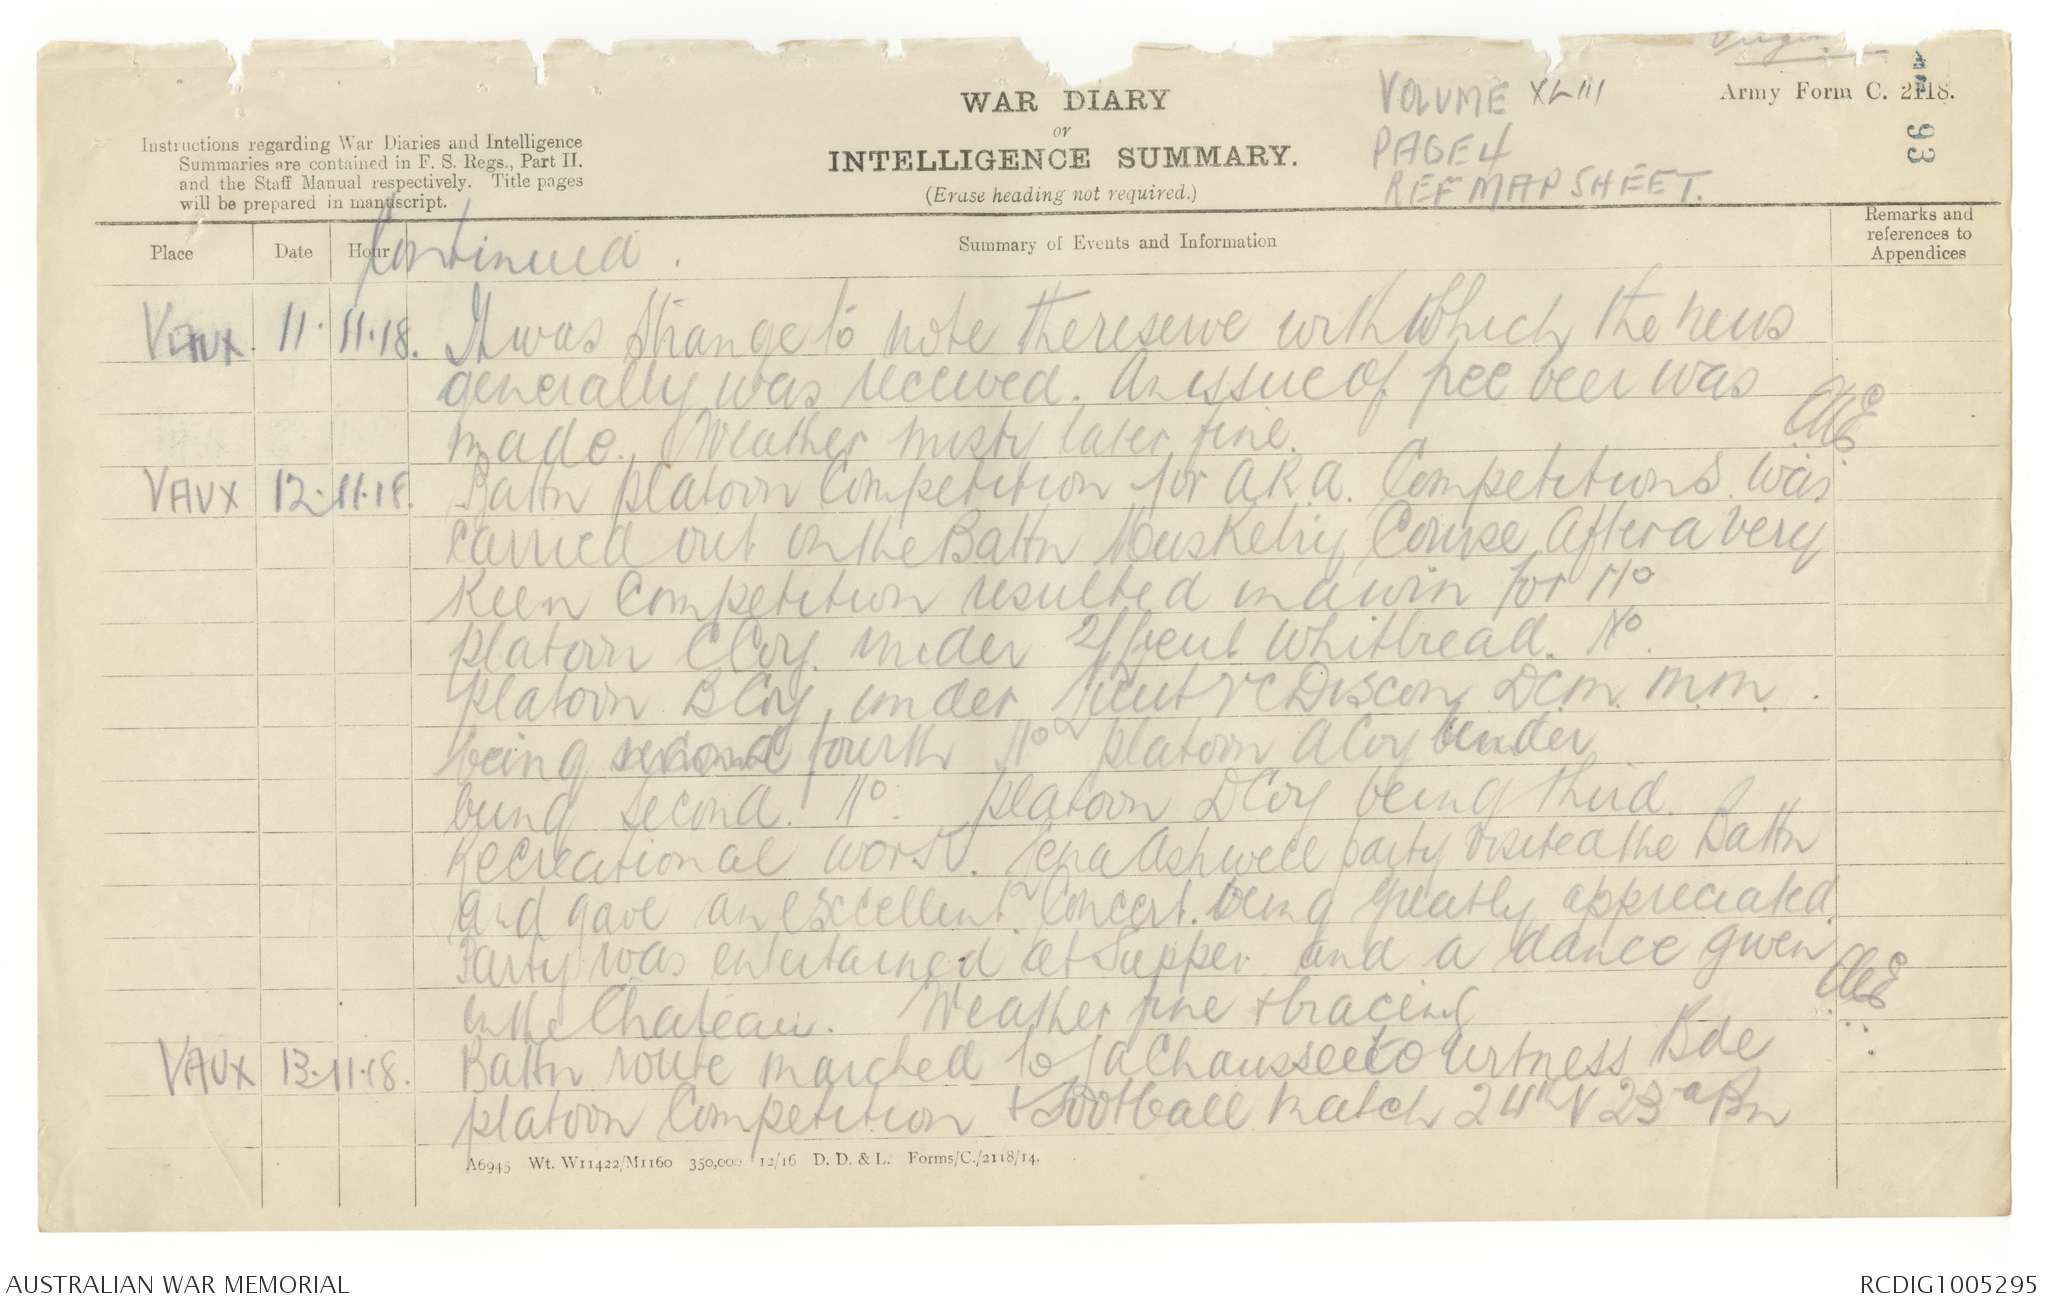 Army Form C. 2118.
93
WAR DIARY
or
INTELLIGENCE SUMMARY.
(Erase heading not required.)
VOLUME XLIII
PAGE 4
REF MAP SHEET.
Instructions regarding War Diaries and Intelligence
Summaries are contained in F. S. Regs., Part II.
and the Staff Manual respectively. Title pages
will be prepared in manuscript.
Place
Date
Hour
Summary of Events and Information
Remarks and
references to
Appendices
Continued.
VAUX. 11.11.18. It was strange to note the reserve with which the news
generally was received. An issue of free beer was
made. Weather misty later fine.
VAUX 12.11.18. Battn platoon Competition for A.R.A. Competitions was
carried out on the Battn Musketry Course. After a very
keen Competition resulted in a win for No
platoon C Coy. under 2/Lieut Whitbread. No.
platoon B Coy under Lieut Discon D.C.M. M.M.
being second fourth No platoon A Coy under
being second. No. platoon D Coy being third.
Recreational work. Lena Ashwell party visited the Battn
and gave an excellent Concert. being greatly appreciated.
Party was entertained at Supper and a dance given
in the Chateau. Weather fine & bracing
VAUX 13.11.18. Battn route marched to La Chaussee to witness Bde
platoon Competition & Football match 24th V 23rd Bn
A6945 Wt. W11422/M1160 350,000 12/16 D. D. & L. Forms/C./2118/14.
AUSTRALIAN WAR MEMORIAL
RCDIG1005295